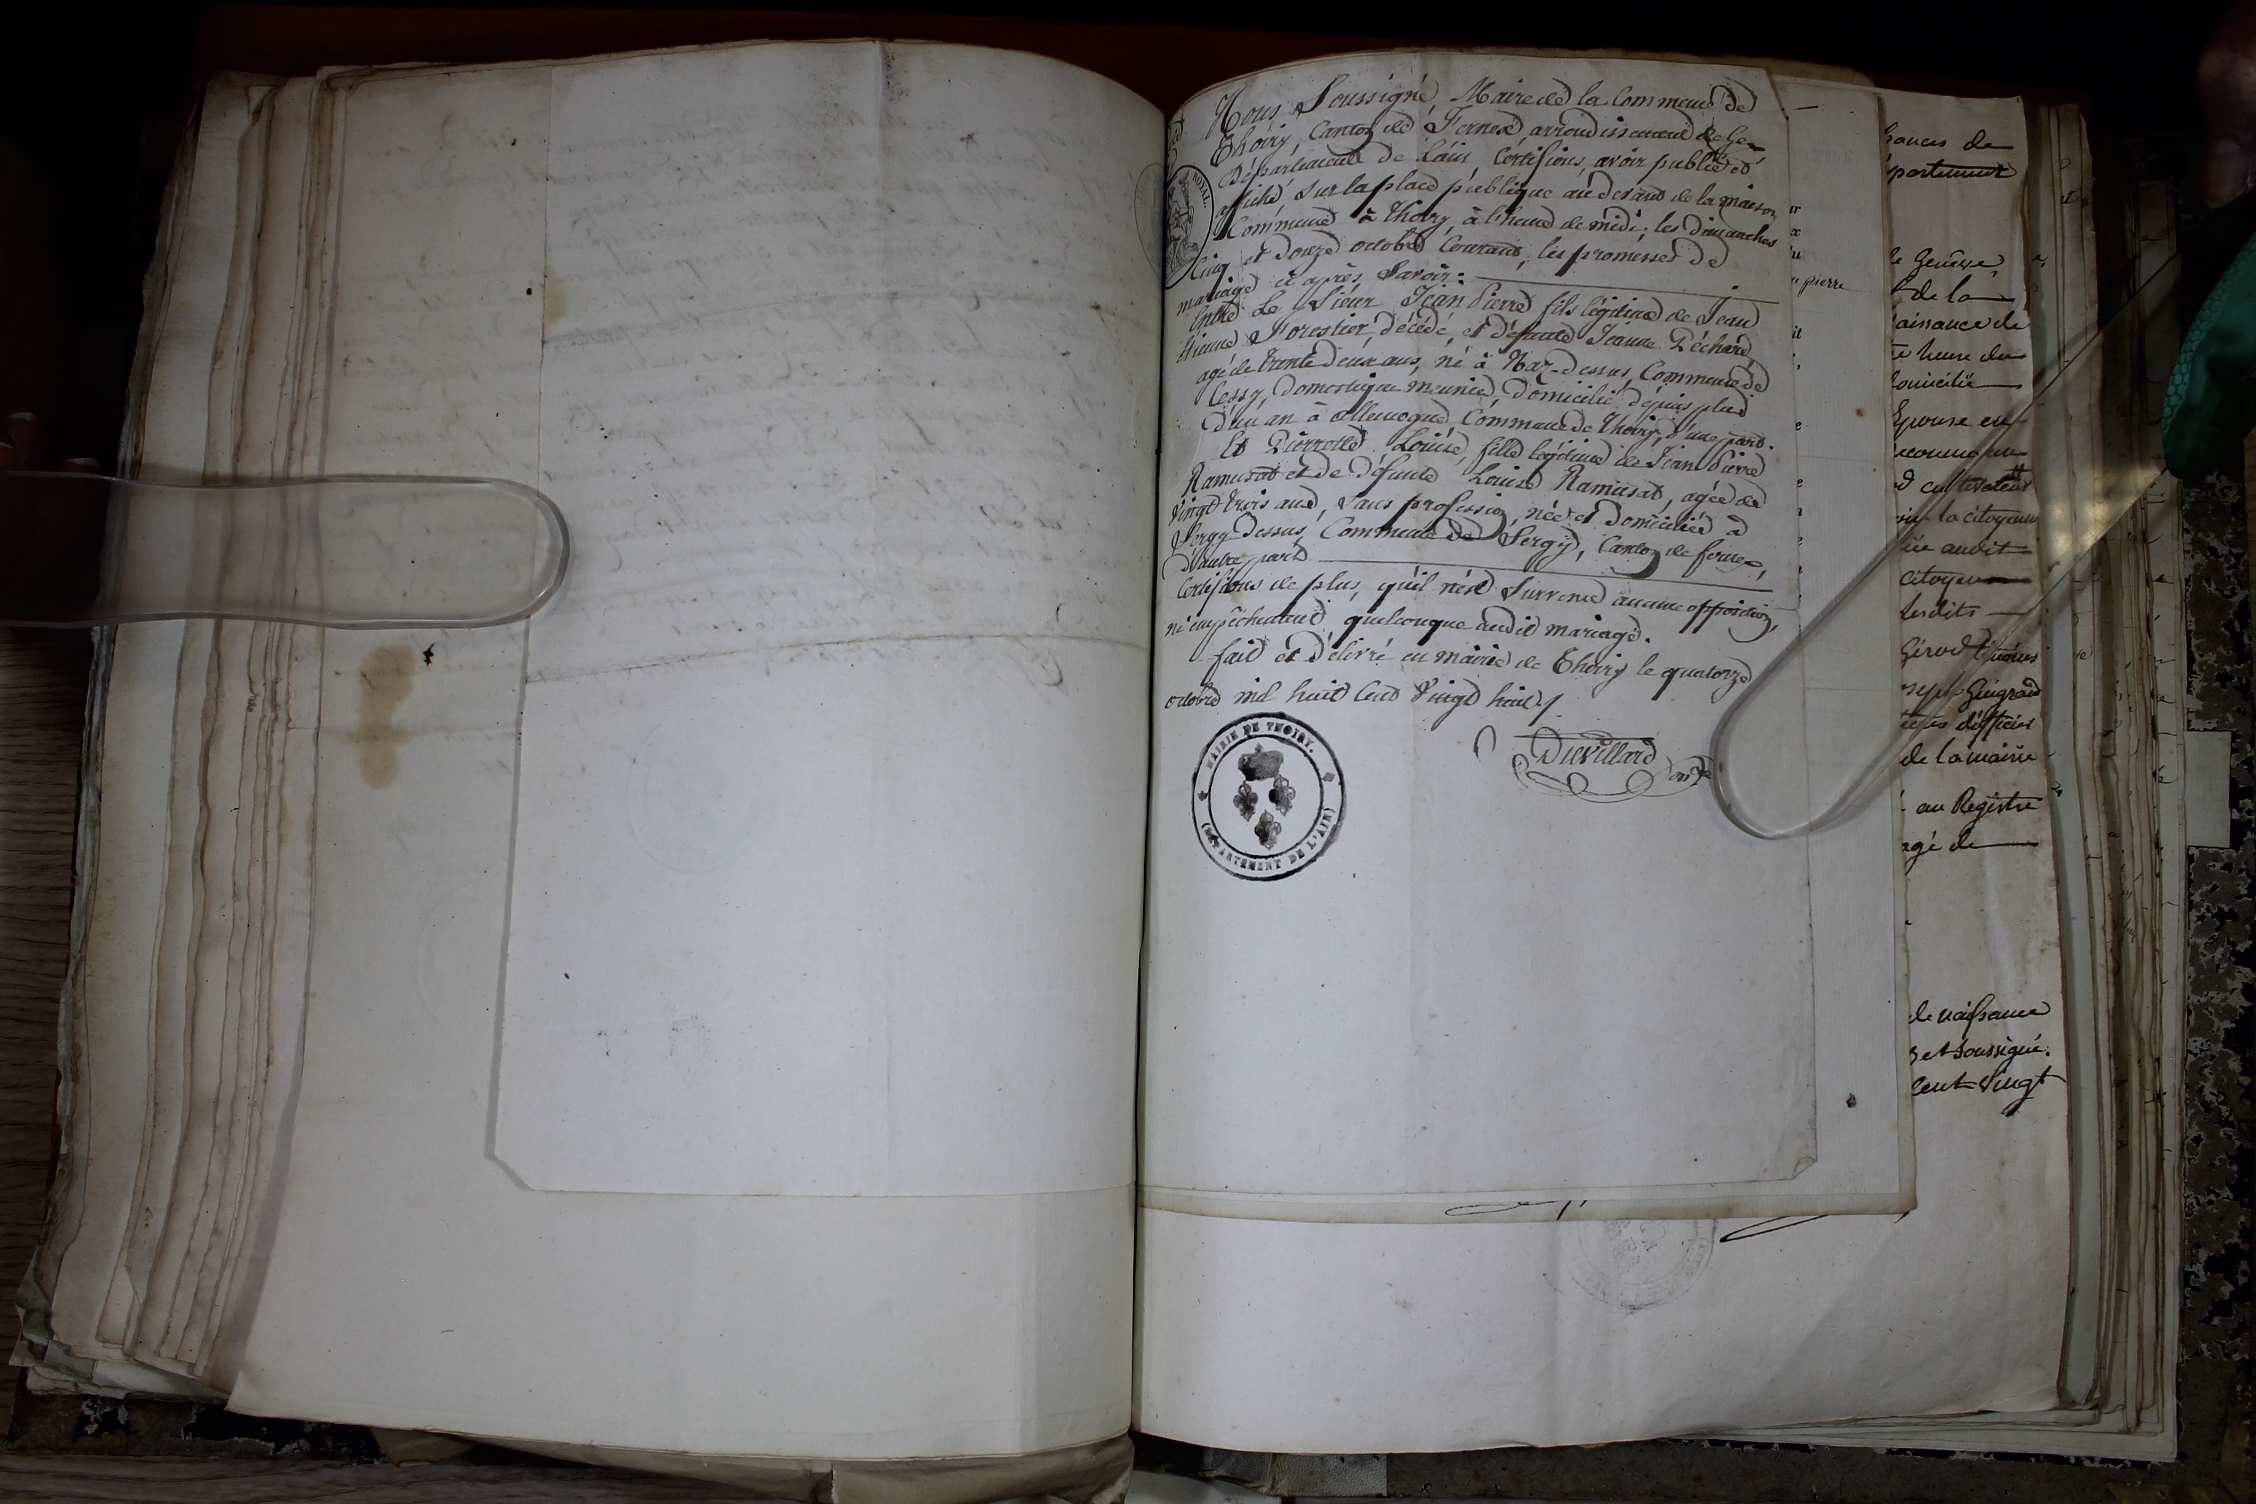 Nous Soussigné, Maire de la Commune de
Thoiry, Canton de Fernex arrondissement de Gex
Département de l'ain, Certifions, avoir publié et
affiché, sur la place publique au devant de la maison
Commune à Thoiry, à l'heure de midi; les dimanches
Cinq et Douze octobre Courant, les promesses de
mariage ci après, Savoir:
Entre Le Sieur Jean Pierre fils légitime de Jean
Etienne Forestier, décédé, et défunte Jeanne Péchard,
agé de trente deux ans, né à Naz-dessus, Commune de
Cessy, Domestique meunier, Domicilié depuis plus
d'un an à allemogne, Commune de Thoiry, d'une part.
Et Pierrette Louise, fille légitime de Jean Pierre
Ramusat et de défunte Louise Ramusat, agée de
Vingt trois ans, Sans profession, née et Domiciliée à
Sergy-Dessus, Commune de Sergy, Canton de fernex,
D'autre part
Certifions de plus, qu'il n'est Survenu aucune opposition,
ni empêchement quelconque audit mariage.
fait et Délivré en mairie de Thoiry le quatorze
octobre mil huit Cent Vingt huit
Duvillard
ROYAL.
MAIRIE DE THOIRY.
(DÉPARTEMENT DE L'AIN)
pierre
de
partement
Genève,
de la
aisance de
heure du
domicilié
Epouse
cultivateur
la citoyenne
audit
citoyen
desdits
Girod
de la mairie
au Registre
agé de
de naissance
et soussigné.
Cent Vingt